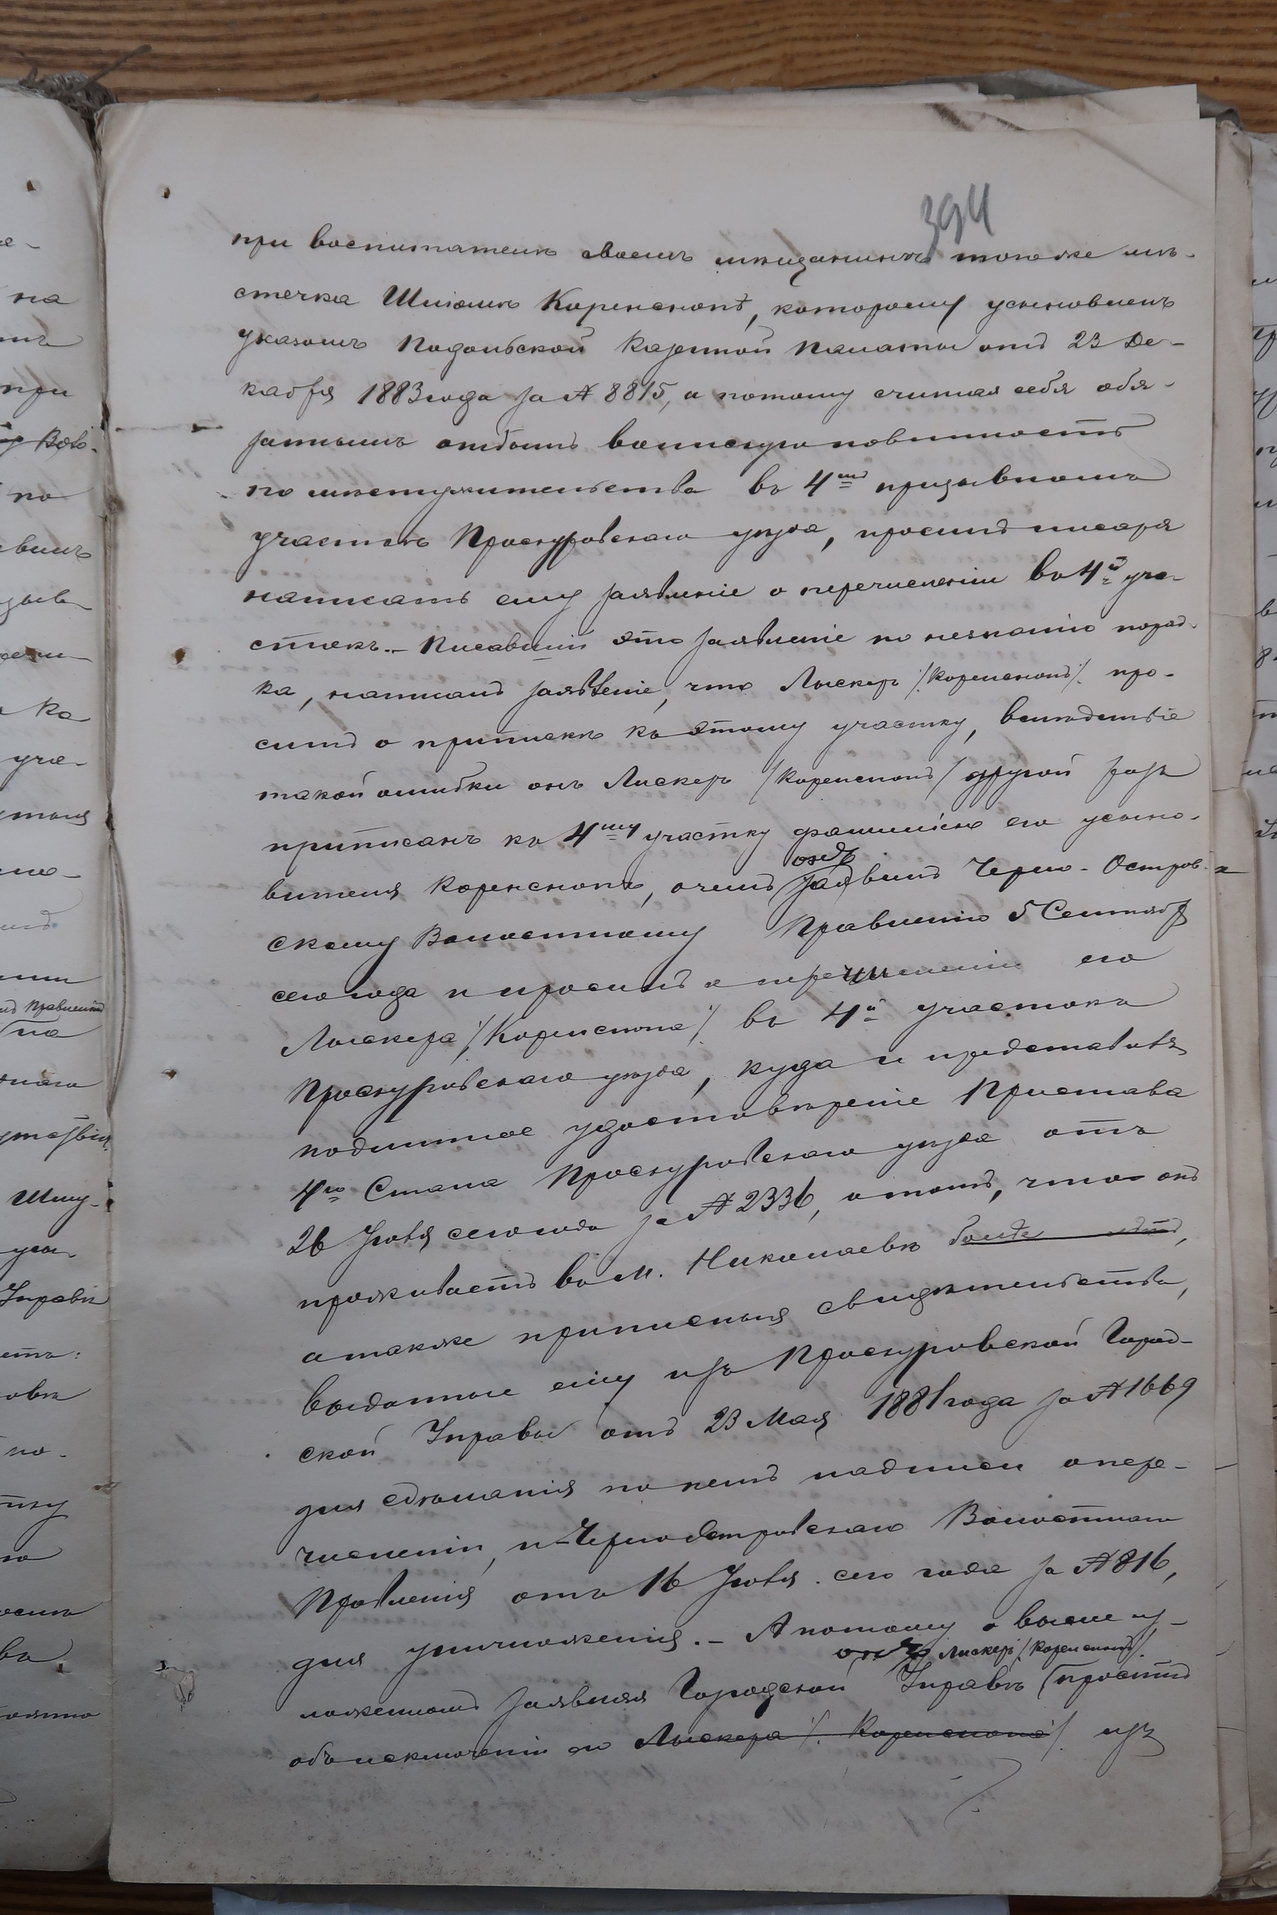 394
при воспитателѣ своемъ мѣщанинѣ тогоже мѣ-
стечка Шмюлѣ Коренскопѣ, которому усыновленъ
указомъ Подольской Казенной Палаты отъ 23 Де-
кабря 1883 года за № 8815, а потому считая себя обя-
заннымъ отбыть воинскую повинность
по мѣстужительства въ 4мъ призывномъ
участкѣ Проскуровскаго уѣзда, просилъ писаря
написать ему заявленіе о перечисленіи въ 4й уча-
стокъ. – Писавшій это заявленіе по незнанію поряд-
ка, написалъ заявленіе, что Лыскеръ /:Коренскопъ:/ про-
ситъ о припискѣ къ этому участку, вслѣдствіе
такой ошибки онъ Лискеръ /Коренскопъ/ другой разъ
приписанъ къ 4му участку фамиліею его усыно-
вителя Коренскопа, о чемъ онъ заявилъ Черно-Остров-
скому Волостному Правленію 5 Сентября
сего года и просилъ о перечисленіи его
Лыскера /:Коренскопа:/ въ 4й участокъ
Проскуровскаго уѣзда, куда и представивъ
подлинное удостовѣреніе Пристава
4го Стана Проскуровскаго уѣзда отъ
26 Іюля сего года за № 2336, о томъ, что онъ
проживаетъ въ м. Николаевкѣ
а также приписныя свидѣтельства,
выданные ему изъ Проскуровской Город-
ской Управы отъ 23 Мая 1881 года за № 1669
для сдѣланія на немъ надписи о пере-
численіи, и Черноостровскаго Волостнаго
Правленія отъ 16 Іюля сего года за № 816,
для уничтоженія. – А потому о выше из-
ложенномъ заявляя Городской Управѣ онъ Лискеръ /Коренскопъ/ проситъ
объ исключеніи его Лыскера /:Коренскопа:/ изъ